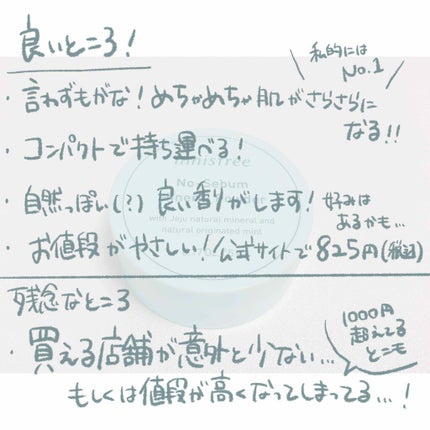 良いところ！
私的には
No.1
・言わずもがな！めちゃめちゃ肌がさらさらに
なる！！
・コンパクトで持ち運べる！
innisfree
No-Sebum
・自然っぽい(？)良い香りがします！好みは
あるかも…
with Jeju natural mineral and
natural originated mint
・お値段がやさしい！公式サイトで825円(税込)
残念なところ
・買える店舗が意外と少ない…
もしくは値段が高くなってしまってる…！
1000円
超えてる
とこも